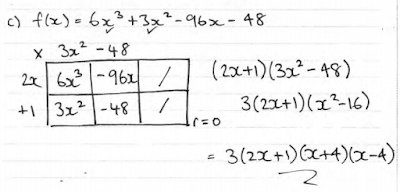 c) f(x) = 6x³ + 3x² - 96x - 48
x 3x² -48
2x 6x³ -96x /
+1 3x² -48 /
r=0
(2x+1)(3x²-48)
3(2x+1)(x²-16)
= 3(2x+1)(x+4)(x-4)